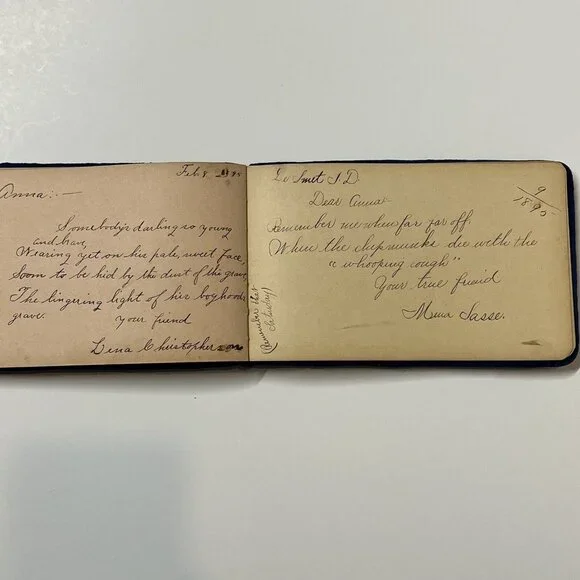 Feb. 8
Anna:—
Somebody's darling so young
and brave,
Wearing yet on his pale, sweet face,
Soon to be hid by the dust of the grave,
The lingering light of his boyhood,
grave.
Your friend
Lena Christopherson
De Smet S.D.
9
1895
Dear Anna
Remember me when far far off
When the chipmunks die with the
"whooping cough"
Your true friend
Sasse.
(Remember that
Saturday)